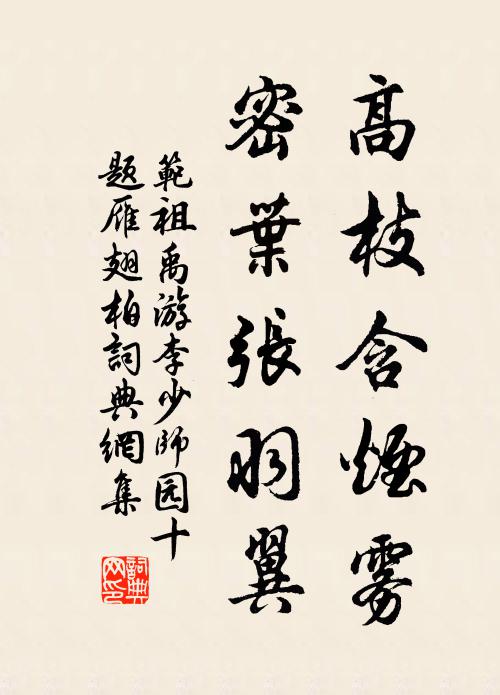 高枝含煙雾
密葉張羽翼
範祖禹游李少师园十
题雁翅柏詞典網集
詞典网印